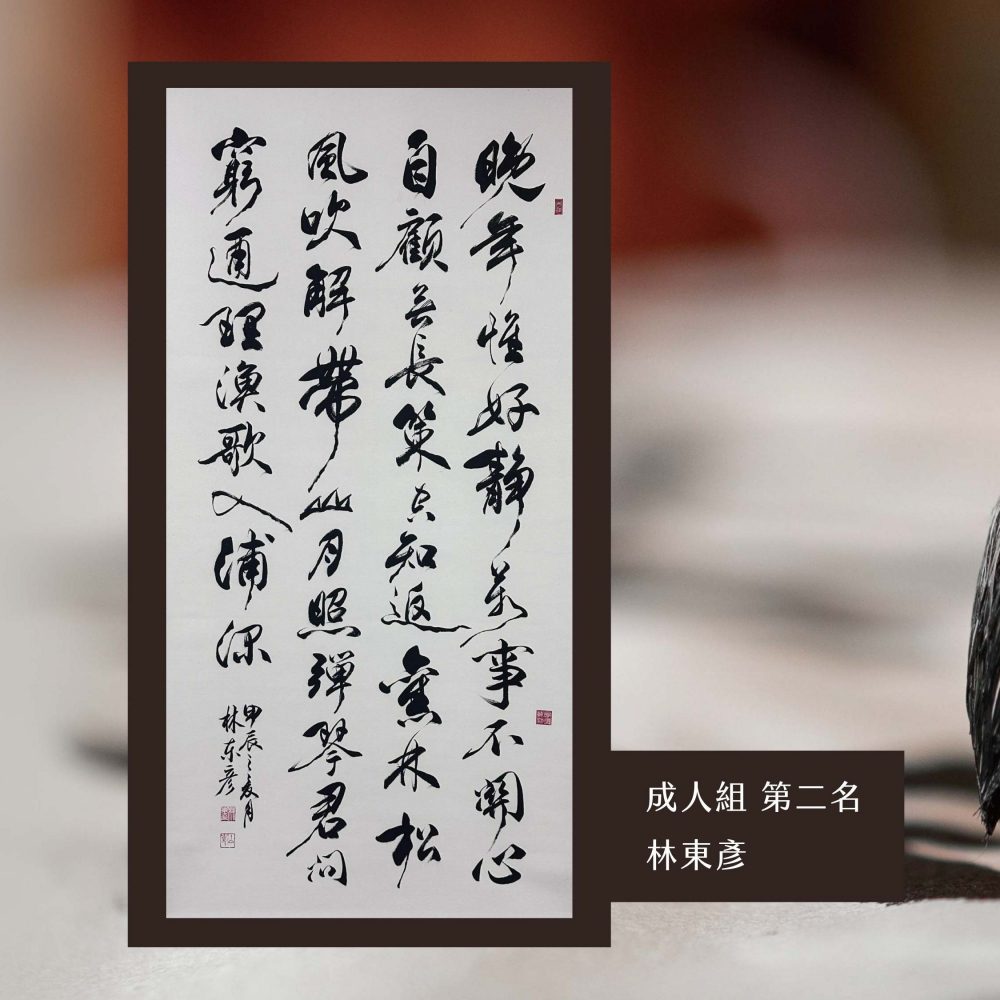 晚年惟好靜萬事不關心
自顧無長策空知返舊林松
風吹解帶山月照彈琴君問
窮通理漁歌入浦深
甲辰之夏月
林東彥
成人組 第二名
林東彥